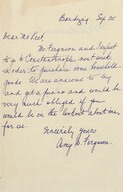 Bardizag Sep. 20
Dear Mr Peet,
Mr Ferguson and I expect
to go to Constantinople next week
in order to purchase some household
goods. We are anxious to try
and get a piano and would be
very much obliged if you
would be on the lookout about one
for us.
Sincerely yours
Amy B. Ferguson.